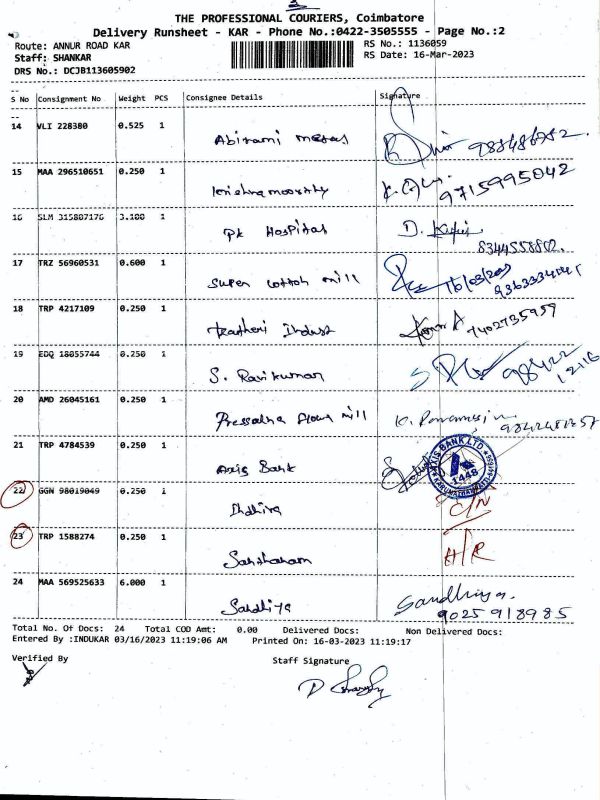 THE PROFESSIONAL COURIERS, Coimbatore
Delivery Runsheet - KAR - Phone No.:0422-3505555 - Page No.:2
Route: ANNUR ROAD KAR
RS No.: 1136059
Staff: SHANKAR
RS Date: 16-Mar-2023
DRS No.: DCJB113605902
S No Consignment No Weight PCS Consignee Details Signature
14 VLI 228380 0.525 1
15 MAA 296510651 0.250 1 9715995042
16 SLM 315887176 3.100 1 Pk Hospital D.
8344558802.
17 TRZ 56960531 0.600 1 Super cotton mill
18 TRP 4217109 0.250 1 7402735959
19 EDQ 18055744 0.250 1 S. Ravikumar
20 AMD 26045161 0.250 1 mill
21 TRP 4784539 0.250 1 Axis Bank AXIS BANK LTD 1448
22 GGN 98019049 0.250 1 Indhira C/N
23 TRP 1588274 0.250 1 H/R
24 MAA 569525633 6.000 1 Sandhiya Sandhiya.
9025918985
Total No. Of Docs: 24 Total COD Amt: 0.00 Delivered Docs: Non Delivered Docs:
Entered By :INDUKAR 03/16/2023 11:19:06 AM Printed On: 16-03-2023 11:19:17
Verified By Staff Signature